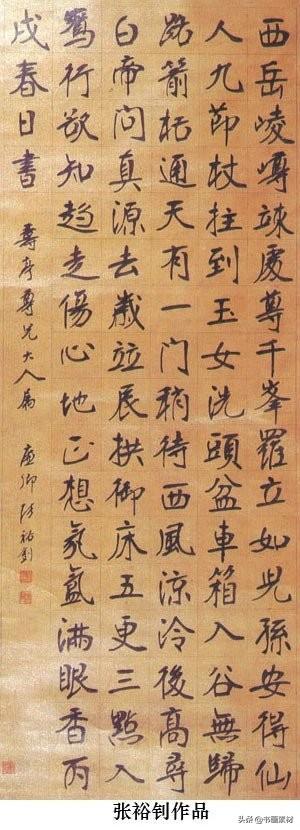 西岳崚嶒竦處尊千峯羅立如兒孫安得仙
人九節杖拄到玉女洗頭盆車箱入谷無歸
路箭栝通天有一門稍待西風涼冷後高尋
白帝問真源去歲茲辰拱御床五更三點入
鴛行欲知趨走傷心地正想氛氳滿眼香丙
戌春日書
壽亭尊兄大人屬 廉卿張裕釗
张裕钊作品
头条 @书画素材